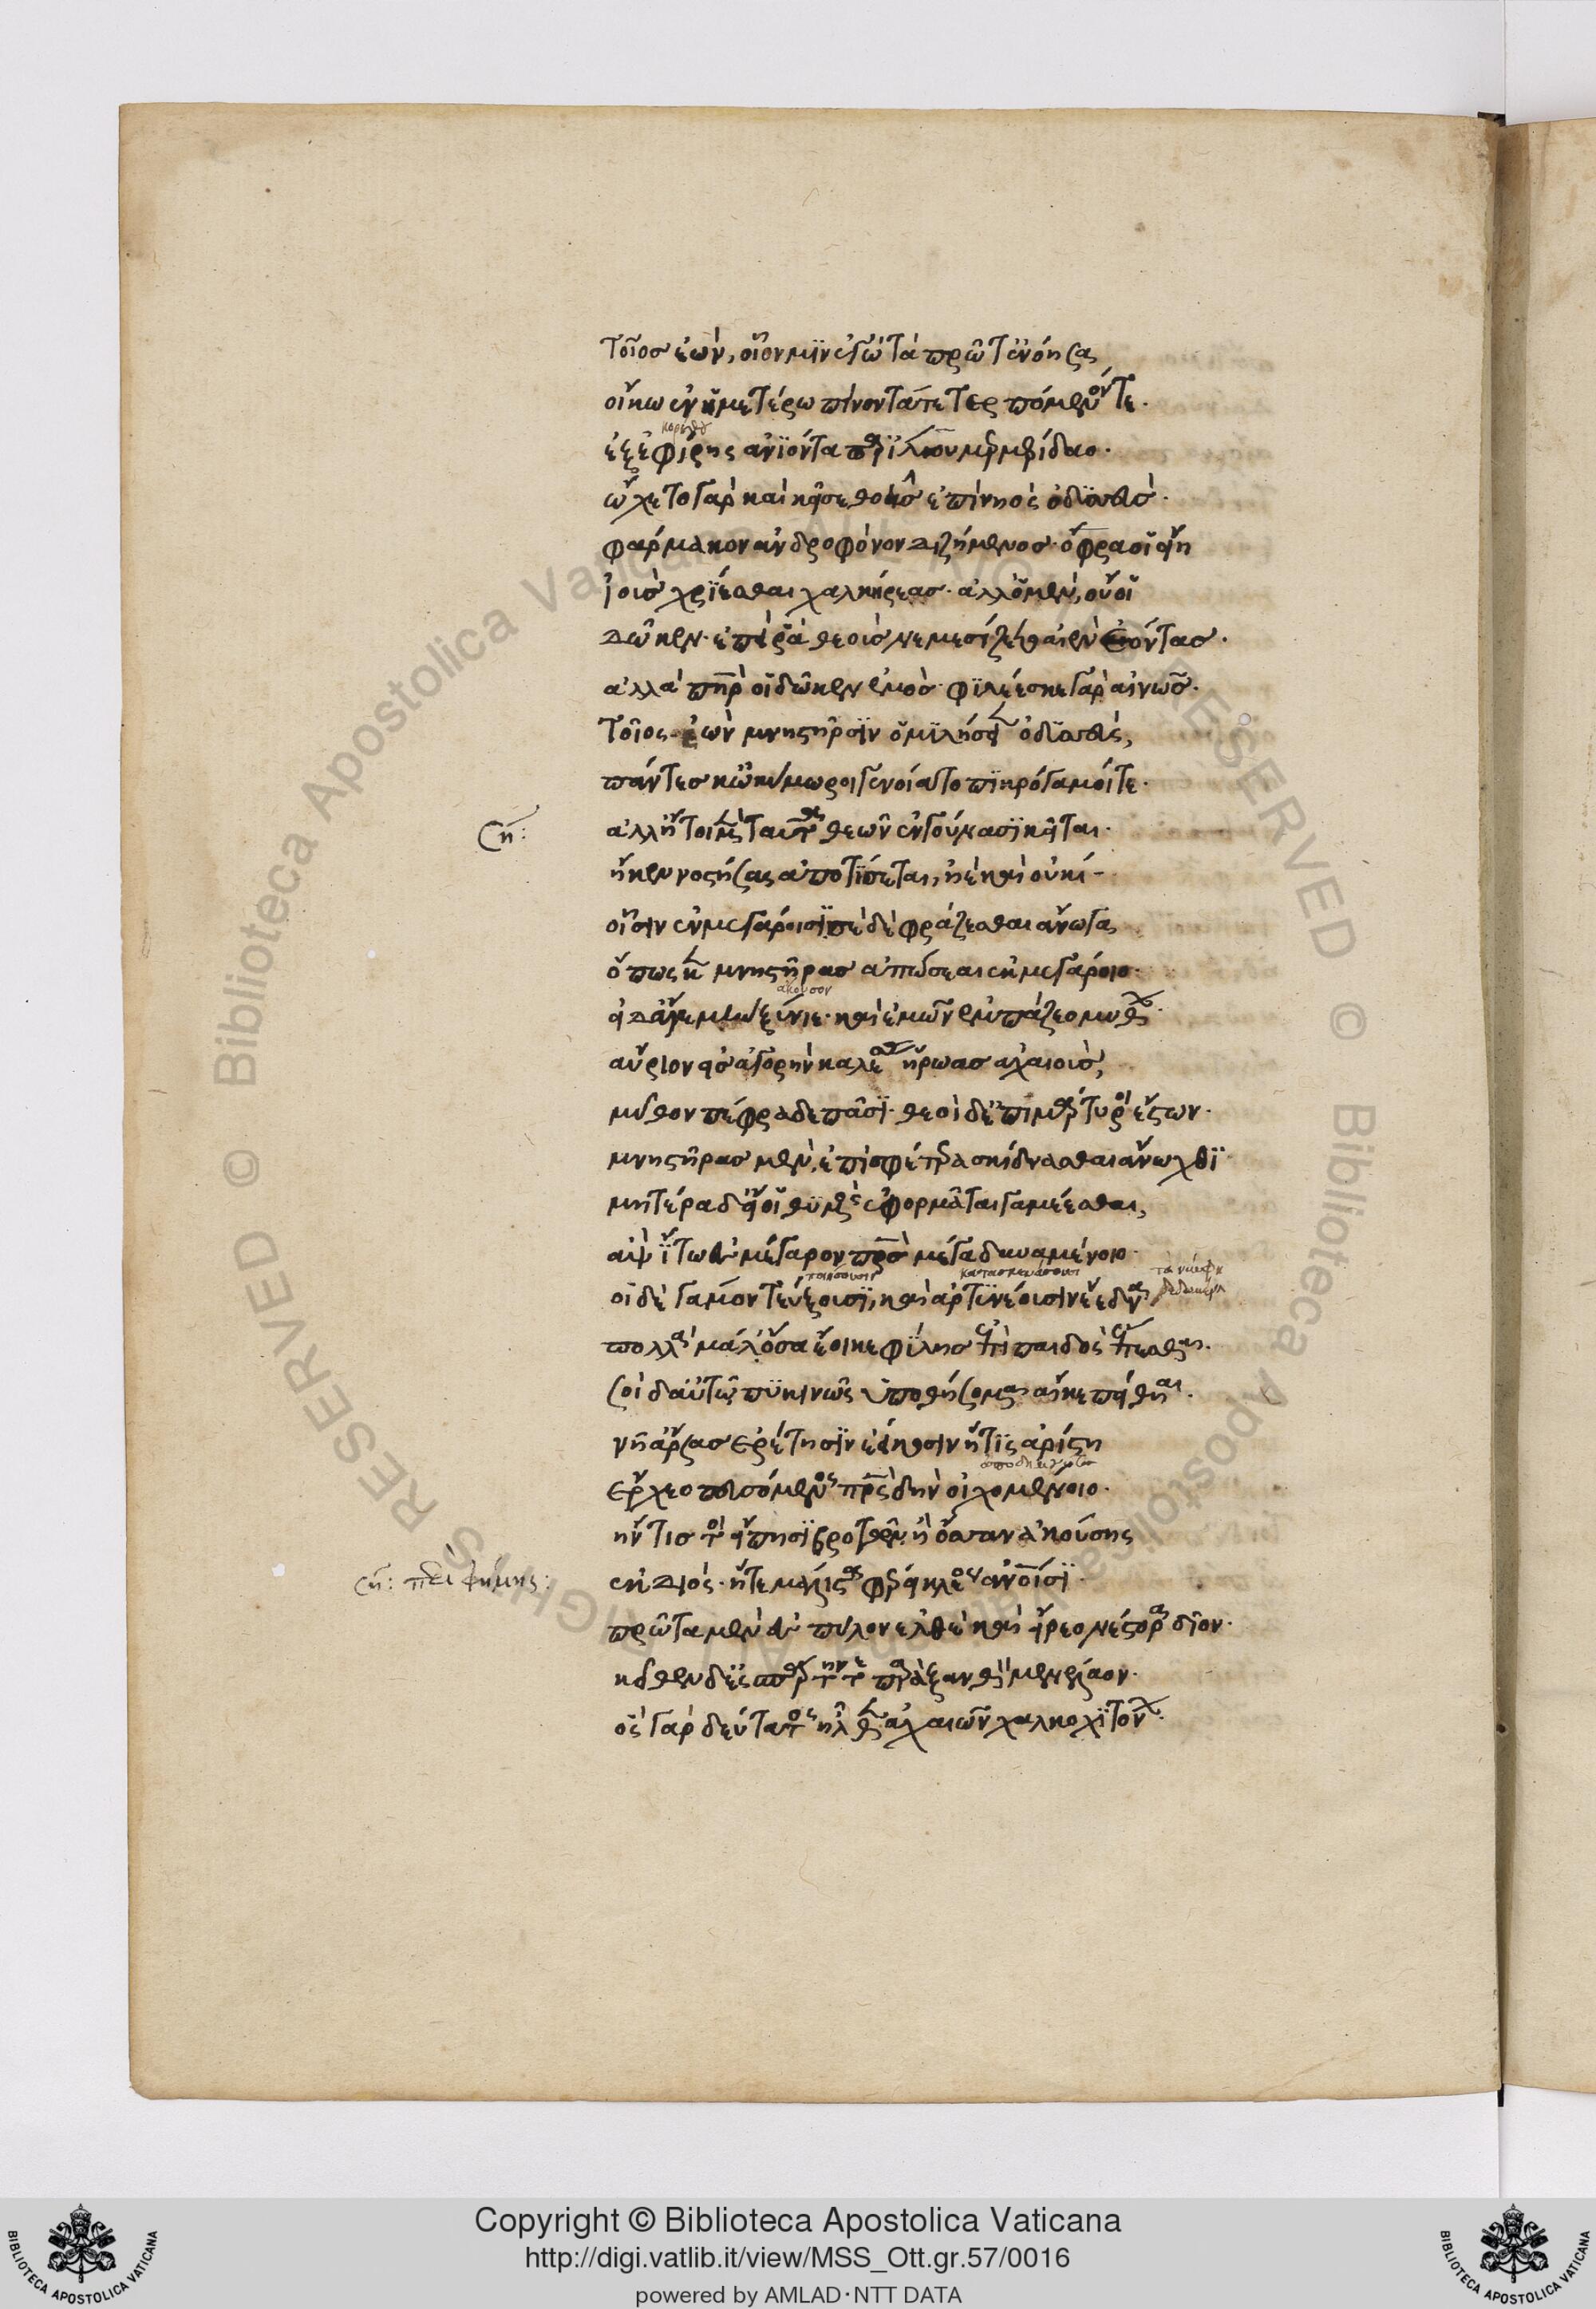 τοῖος ἐὼν, οἷόν μιν ἐγὼ τὰ πρῶτ' ἐνόησα,
οἴκω ἐν ἡμετέρω πίνοντά τε τερπόμενόν τε.
κορίνθου
ἐξ ἐφύρης ἀνιόντα παρ' ἴλου μερμερίδαο.
ὤχετο γὰρ καὶ κεῖσε θοῆς ἐπὶ νηὸς ὀδυσσεύς.
φάρμακον ἀνδροφόνον διζήμενος. ὄφρα οἱ εἴη
ἰοὺς χρίεσθαι χαλκήρεας. ἀλλ' ὁ μὲν, οὔ οἱ
δῶκεν. ἐπεί ῥα θεοὺς νεμεσίζετο αἰὲν ἐόντας.
ἀλλὰ πατήρ οἱ δῶκεν ἐμός. φιλέεσκε γὰρ αἰνῶς.
τοῖος ἐὼν μνηστῆρσιν ὁμιλήσειεν ὀδυσσεύς,
πάντες κ' ὠκύμοροι γενοίατο πικρόγαμοί τε.
ση:
ἀλλ' ἤτοι μὲν ταῦτα θεῶν ἐν γούνασι κεῖται.
ἤ κεν νοστήσας ἀποτίσεται, ἠὲ καὶ οὐκί
οἷσιν ἐν μεγάροισι. σὲ δὲ φράζεσθαι ἄνωγα,
ὅπως κε μνηστῆρας ἀπώσεαι ἐκ μεγάροιο.
ἄκουσον
εἰ δ' ἄγε νῦν ξυνίει. καὶ ἐμῶν ἐμπάζεο μύθων.
αὔριον εἰς ἀγορὴν καλέσας ἥρωας ἀχαιούς,
μῦθον πέφραδε πᾶσι. θεοὶ δ' ἐπιμάρτυροι ἔστων.
μνηστῆρας μὲν, ἐπὶ σφέτερα σκίδνασθαι ἄνωχθι
μητέρα δ' εἴ οἱ θυμὸς ἐφορμᾶται γαμέεσθαι,
ἂψ ἴτω ἐς μέγαρον πατρὸς μέγα δυναμένοιο.
ποιήσουσι κατασκευάσουσι
οἱ δὲ γάμον τεύξουσι, καὶ ἀρτυνέουσιν ἔεδνα
πολλὰ μάλ' ὅσσα ἔοικε φίλης ἐπὶ παιδὸς ἕπεσθαι.
σοὶ δ' αὐτῶ πυκινῶς ὑποθήσομαι αἴ κε πίθηαι.
νῆ' ἄρσας ἐρέτησιν ἐείκοσιν ἥτις ἀρίστη
ἔρχεο πευσόμενος πατρὸς δὴν οἰχομένοιο.
ἤν τίς τοι εἴπησι βροτῶν. ἢ ὄσσαν ἀκούσης
ση: περὶ φήμης:
ἐκ διός. ἥτε μάλιστα φέρει κλέος ἀνθρώποισι.
πρῶτα μὲν ἐς πύλον ἐλθὲ καὶ εἴρεο νέστορα δῖον.
κεῖθεν δὲ σπάρτηνδε παρὰ ξανθὸν μενέλαον.
ὃς γὰρ δεύτατος ἦλθεν ἀχαιῶν χαλκοχιτώνων.
Copyright © Biblioteca Apostolica Vaticana
http://digi.vatlib.it/view/MSS_Ott.gr.57/0016
powered by AMLAD·NTT DATA